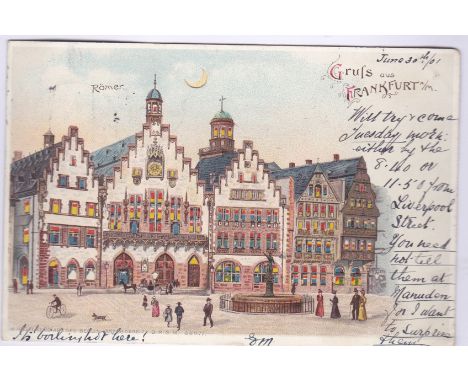 June 30th/01
Römer.
Gruss aus
FRANKFURT a/m.
Will try & come
Tuesday morn:
either by the
8.40 or
11.50 from
Liverpool
Street.
You need
not tell
them at
Manuden
for I want
to surprise
them
It's boiling hot here!